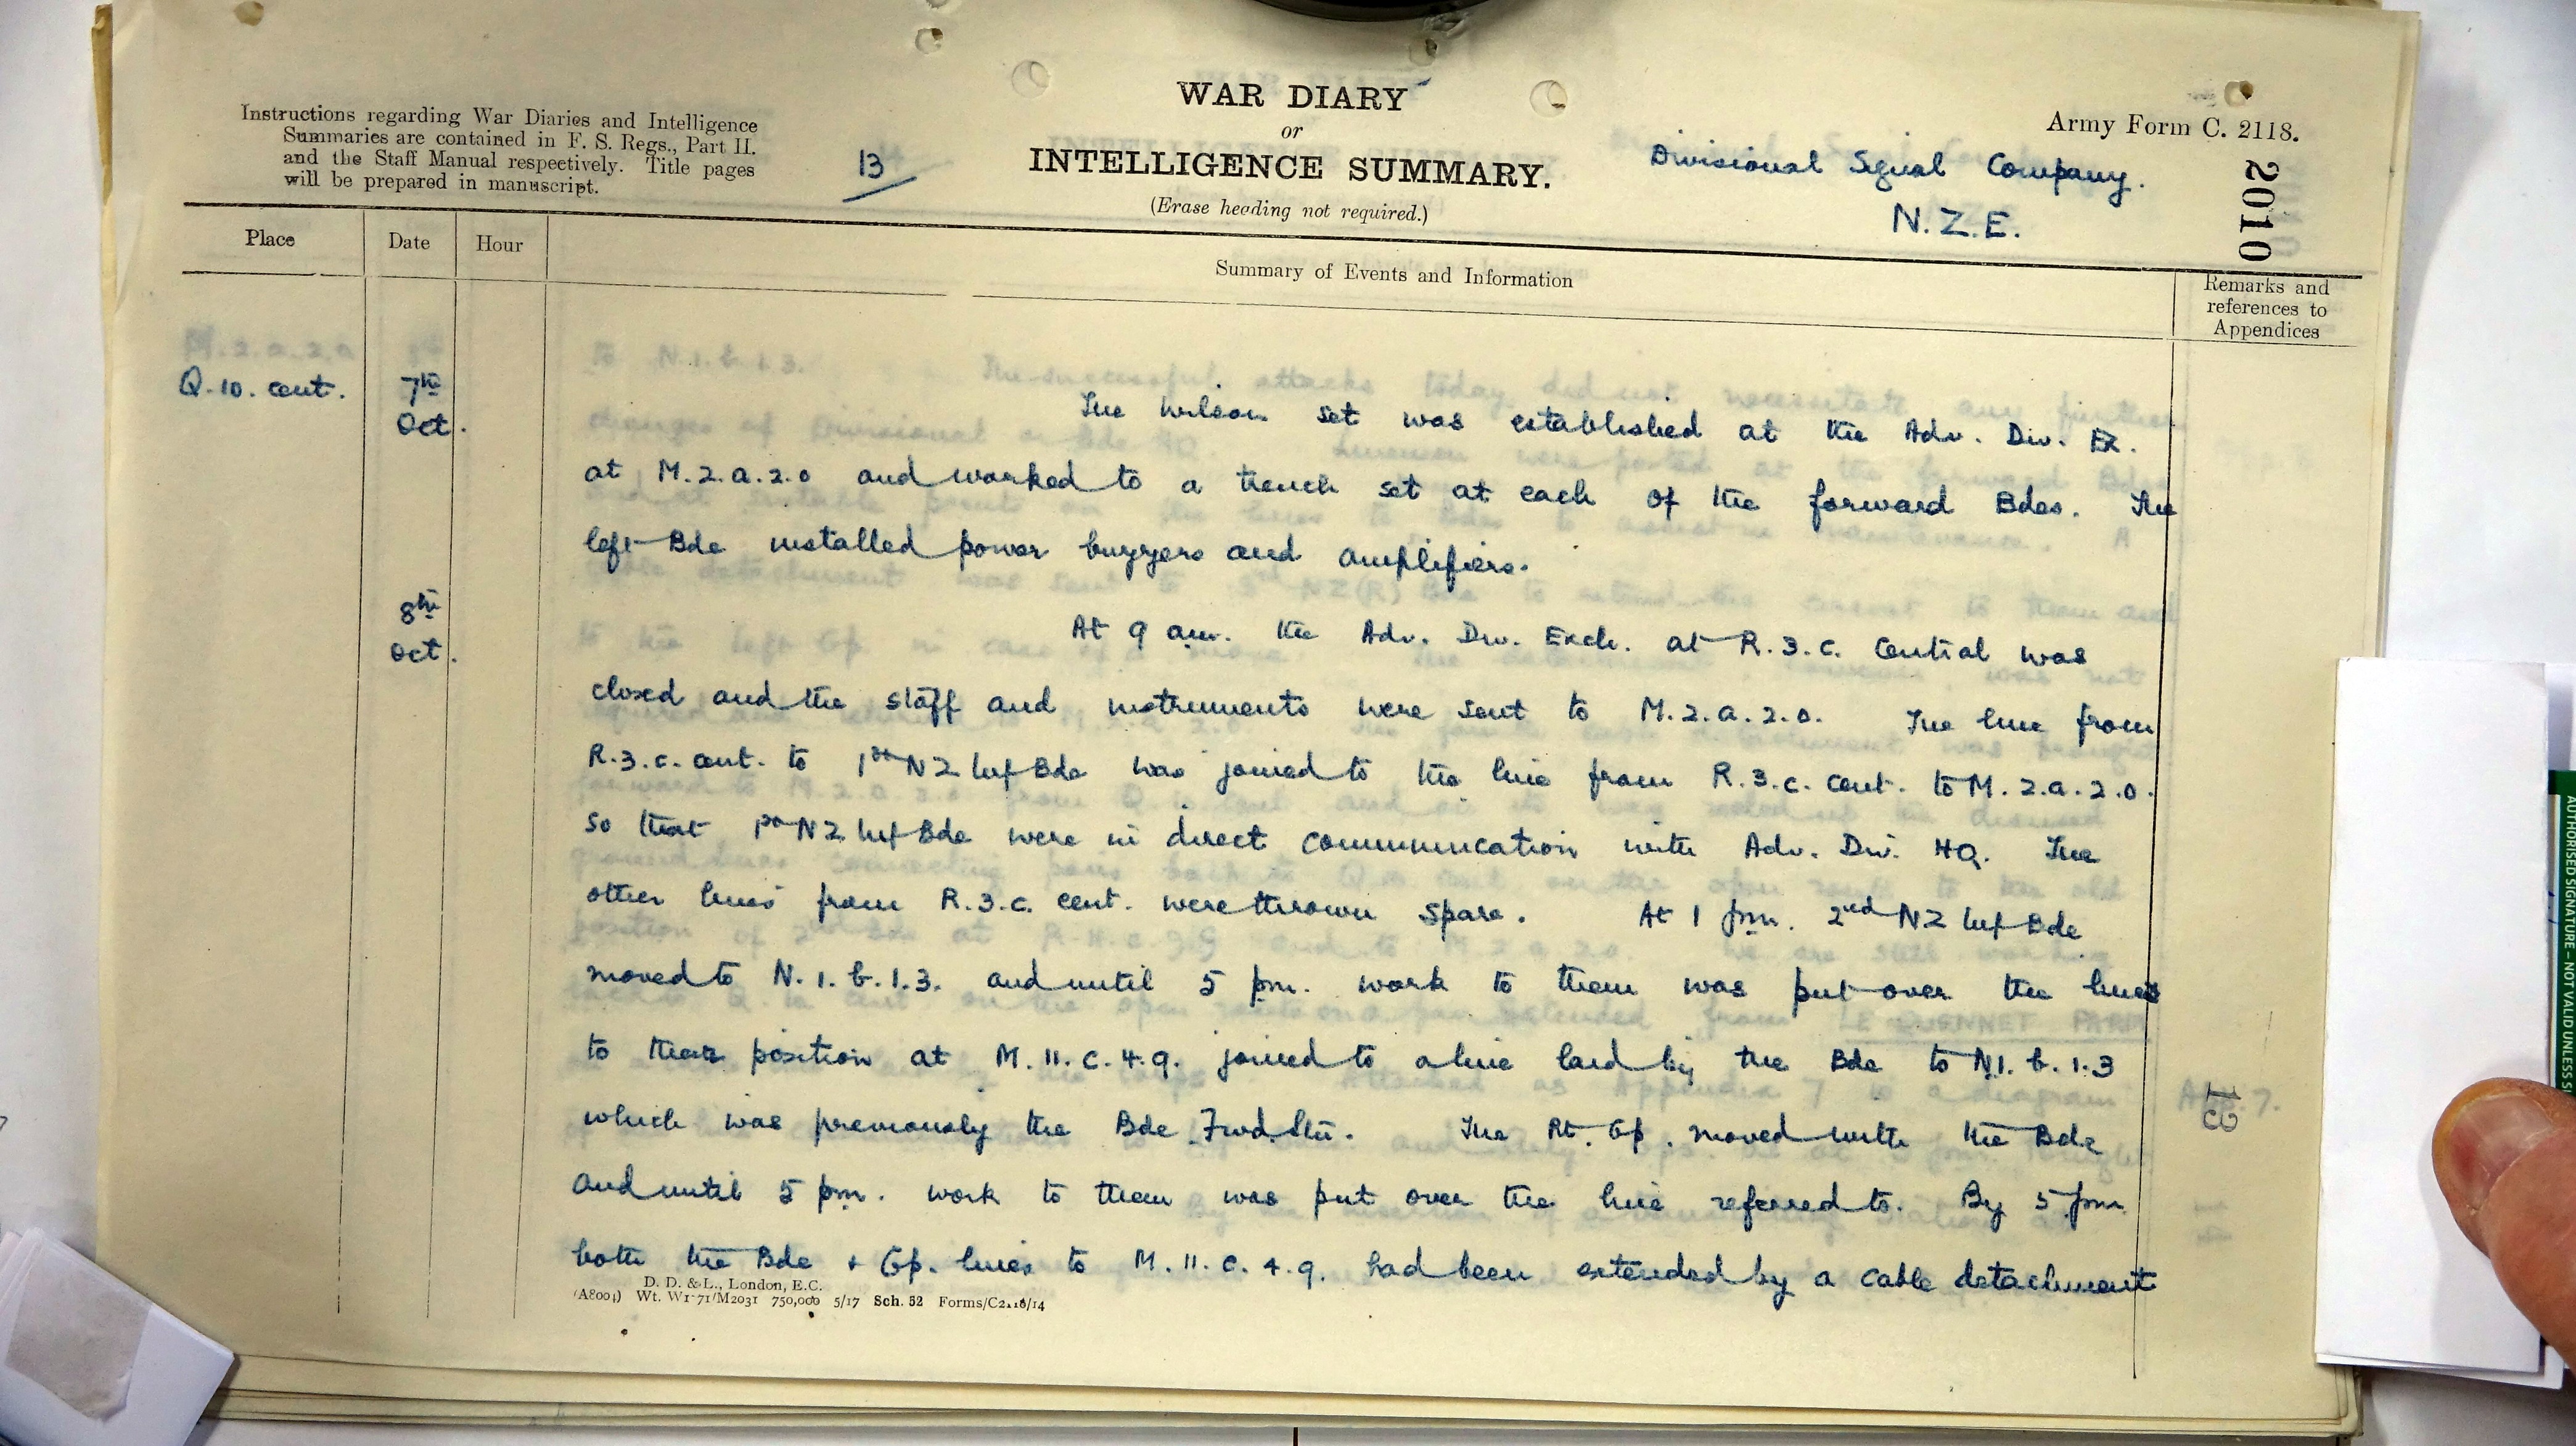 Instructions regarding War Diaries and Intelligence
Summaries are contained in F. S. Regs., Part II.
and the Staff Manual respectively. Title pages
will be prepared in manuscript.
13
WAR DIARY
or
INTELLIGENCE SUMMARY.
(Erase heading not required.)
Army Form C. 2118.
Divisional Signal Company.
N.Z.E.
2010
Place
Date
Hour
Summary of Events and Information
Remarks and
references to
Appendices
Q.10. cent.
7th
Oct.
The Wilson set was established at the Adv. Div. Ex.
at M.2.a.2.0 and worked to a trench set at each of the forward Bdes. The
left Bde installed power buzzers and amplifiers.
8th
Oct.
At 9 am. the Adv. Div. Exch. at R.3.c. Central was
closed and the staff and instruments were sent to M.2.a.2.0. The line from
R.3.c. cent. to 1st NZ Inf Bde was joined to the line from R.3.c. cent. to M.2.a.2.0.
so that 1st NZ Inf Bde were in direct communication with Adv. Div. HQ. The
other lines from R.3.c. cent. were thrown spare. At 1 pm. 2nd NZ Inf Bde
moved to N.1.b.1.3. and until 5 pm. work to them was put over the lines
to their position at M.11.c.4.9. joined to a line laid by the Bde to N1.b.1.3
which was previously the Bde Fwd. Stn. The Rt. Gp. moved with the Bde
and until 5 pm. work to them was put over the line referred to. By 5 pm
both the Bde & Gp. lines to M.11.c.4.9. had been extended by a cable detachment
13
D. D. & L., London, E.C.
(A8001) Wt. W1771/M2031 750,000 5/17 Sch. 52 Forms/C2118/14
AUTHORISED SIGNATURE – NOT VALID UNLESS S